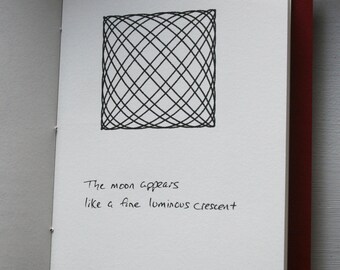 The moon appears
like a fine luminous crescent